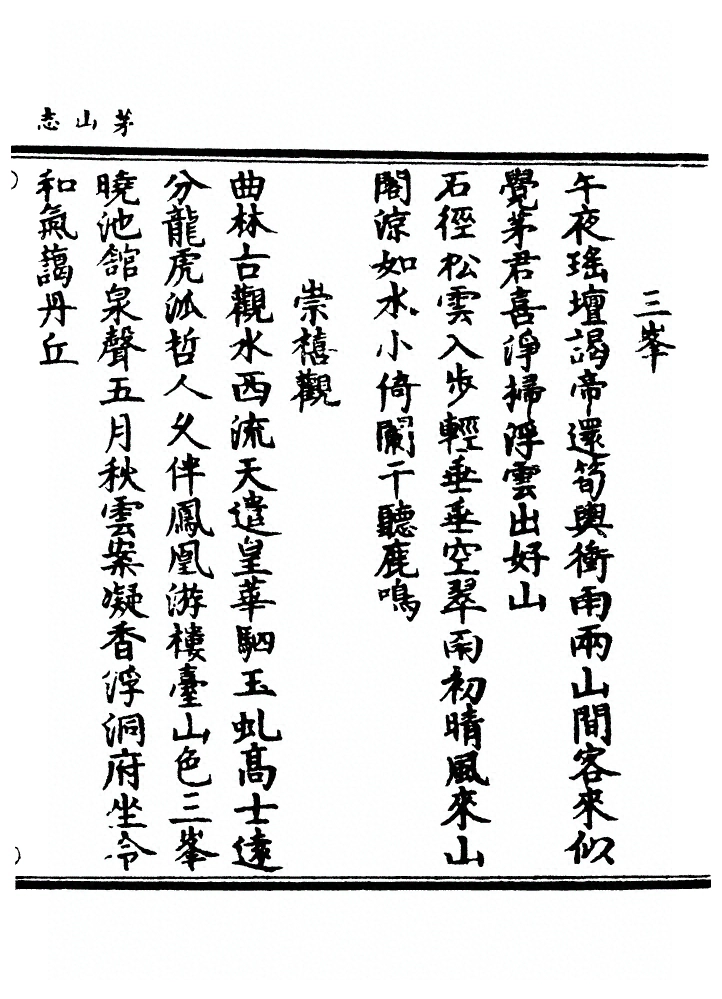 茅山志
三峯
午夜瑤壇謁帝還筍輿衝雨兩山間客來似
覺茅君喜淨掃浮雲出好山
石徑松雲入步輕垂垂空翠雨初晴風來山
閣涼如水小倚闌干聽鹿鳴
崇禧觀
曲林古觀水西流天遣皇華駟玉虬高士遠
分龍虎派哲人久伴鳳凰游樓臺山色三峯
曉池館泉聲五月秋雲案凝香浮洞府坐令
和氣藹丹丘